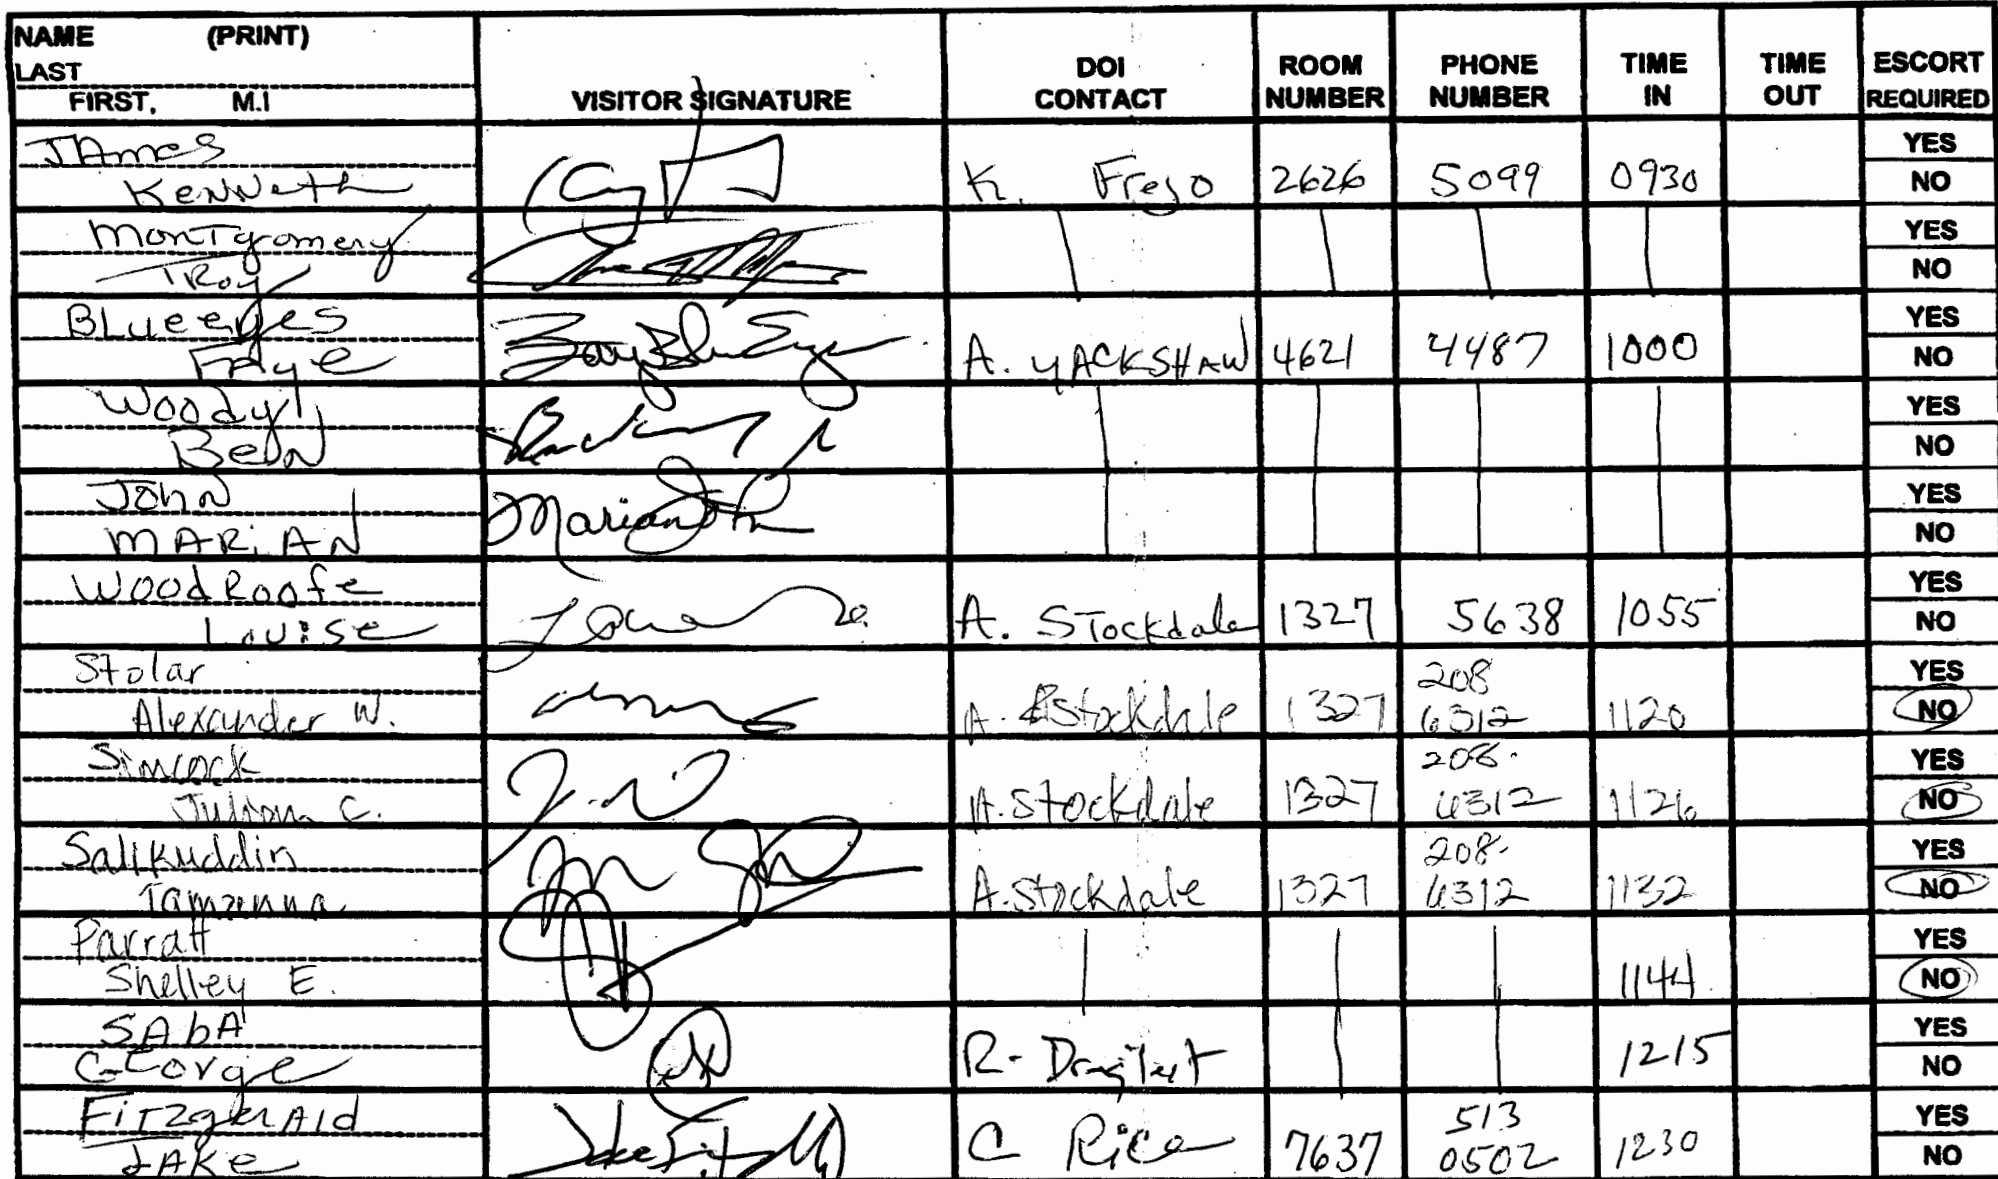 NAME (PRINT)
LAST
FIRST, M.I
VISITOR SIGNATURE
DOI CONTACT
ROOM NUMBER
PHONE NUMBER
TIME IN
TIME OUT
ESCORT REQUIRED
JAmes
KenNeth
K. Frejo 2626 5099 0930
YES
NO
MonTgomery
TRoy
YES
NO
BLueeyes
FAye
A. YACKSHAW 4621 4487 1000
YES
NO
Woody
YES
NO
John
MARiAN
Marian
YES
NO
WoodRoofe
Louise
A. STockdale 1327 5638 1055
YES
NO
Stolar
Alexander W.
A. Stockdale 1327 208 6312 1120
YES
NO
Simcock
Julian C.
A. Stockdale 1327 208- 6312 1126
YES
NO
Salikuddin
Tamanna
A. Stockdale 1327 208- 6312 1132
YES
NO
Parratt
Shelley E.
1144
YES
NO
SAbA
George
R- 1215
YES
NO
FiTzgerAld
JAKe
C Rice 7637 513 0502 1230
YES
NO